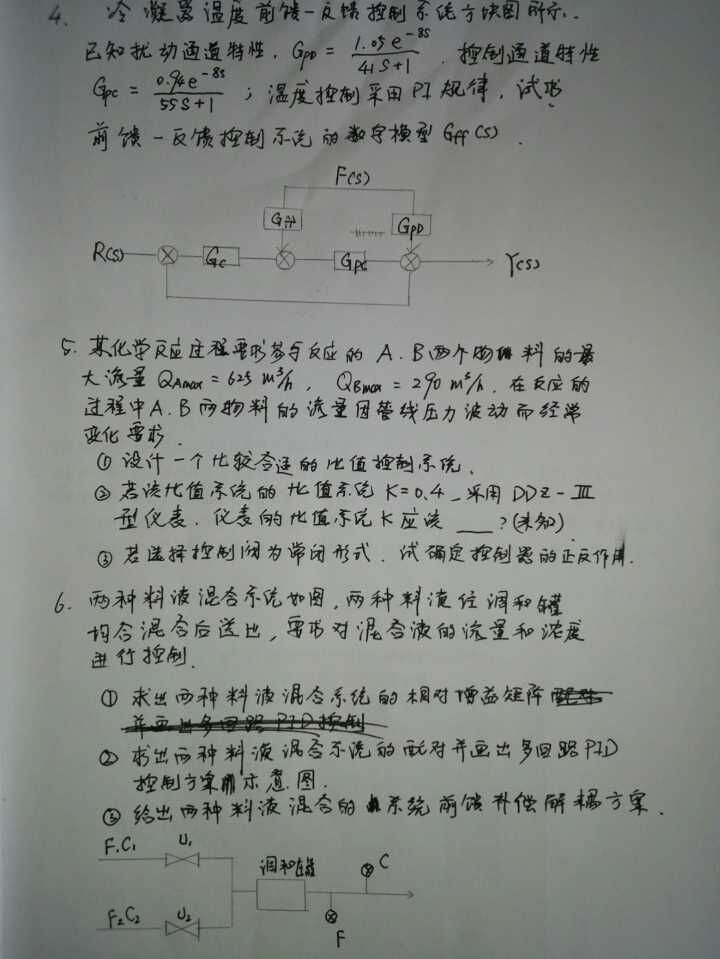 4. 冷凝器温度前馈-反馈控制系统方块图所示.
已知扰动通道特性, GPD = 1.05e^-8s / 41S+1 , 控制通道特性
Gpc = 0.94e^-8s / 55S+1 ; 温度控制采用PI规律, 试求
前馈-反馈控制系统的数学模型 Gff(s).
F(s)
Gff GPD
R(s) Gc Gpc Y(s)
5. 某化学反应过程要求参与反应的A.B两个物料的最
大流量 QAmax = 625 m³/h, QBmax = 290 m³/h. 在反应的
过程中A.B两物料的流量因管线压力波动而经常
变化要求.
① 设计一个比较合适的比值控制系统.
② 若该比值系统的比值系统 K=0.4, 采用DDZ-III
型仪表. 仪表的比值系统K应该 ___ ?(未知)
③ 若选择控制阀为常闭形式. 试确定控制器的正反作用.
6. 两种料液混合系统如图, 两种料液在调和罐
均合混合后送出, 要求对混合液的流量和浓度
进行控制.
① 求出两种料液混合系统的相对增益矩阵
并画出多回路PID控制
② 求出两种料液混合系统的配对并画出多回路PID
控制方案示意图.
③ 给出两种料液混合的系统前馈补偿解耦方案.
F1C1 U1
调和罐 C
F2C2 U2
F